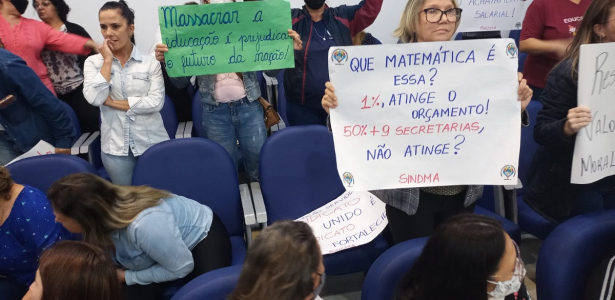 Massacrar a
educação é prejudicar
o futuro da nação!
QUE MATEMÁTICA É
ESSA?
1%, ATINGE O
ORÇAMENTO!
50% + 9 SECRETARIAS,
NÃO ATINGE?
SINDMA
SALARIAL!
UNIDO É
FORTALECI
MORAL